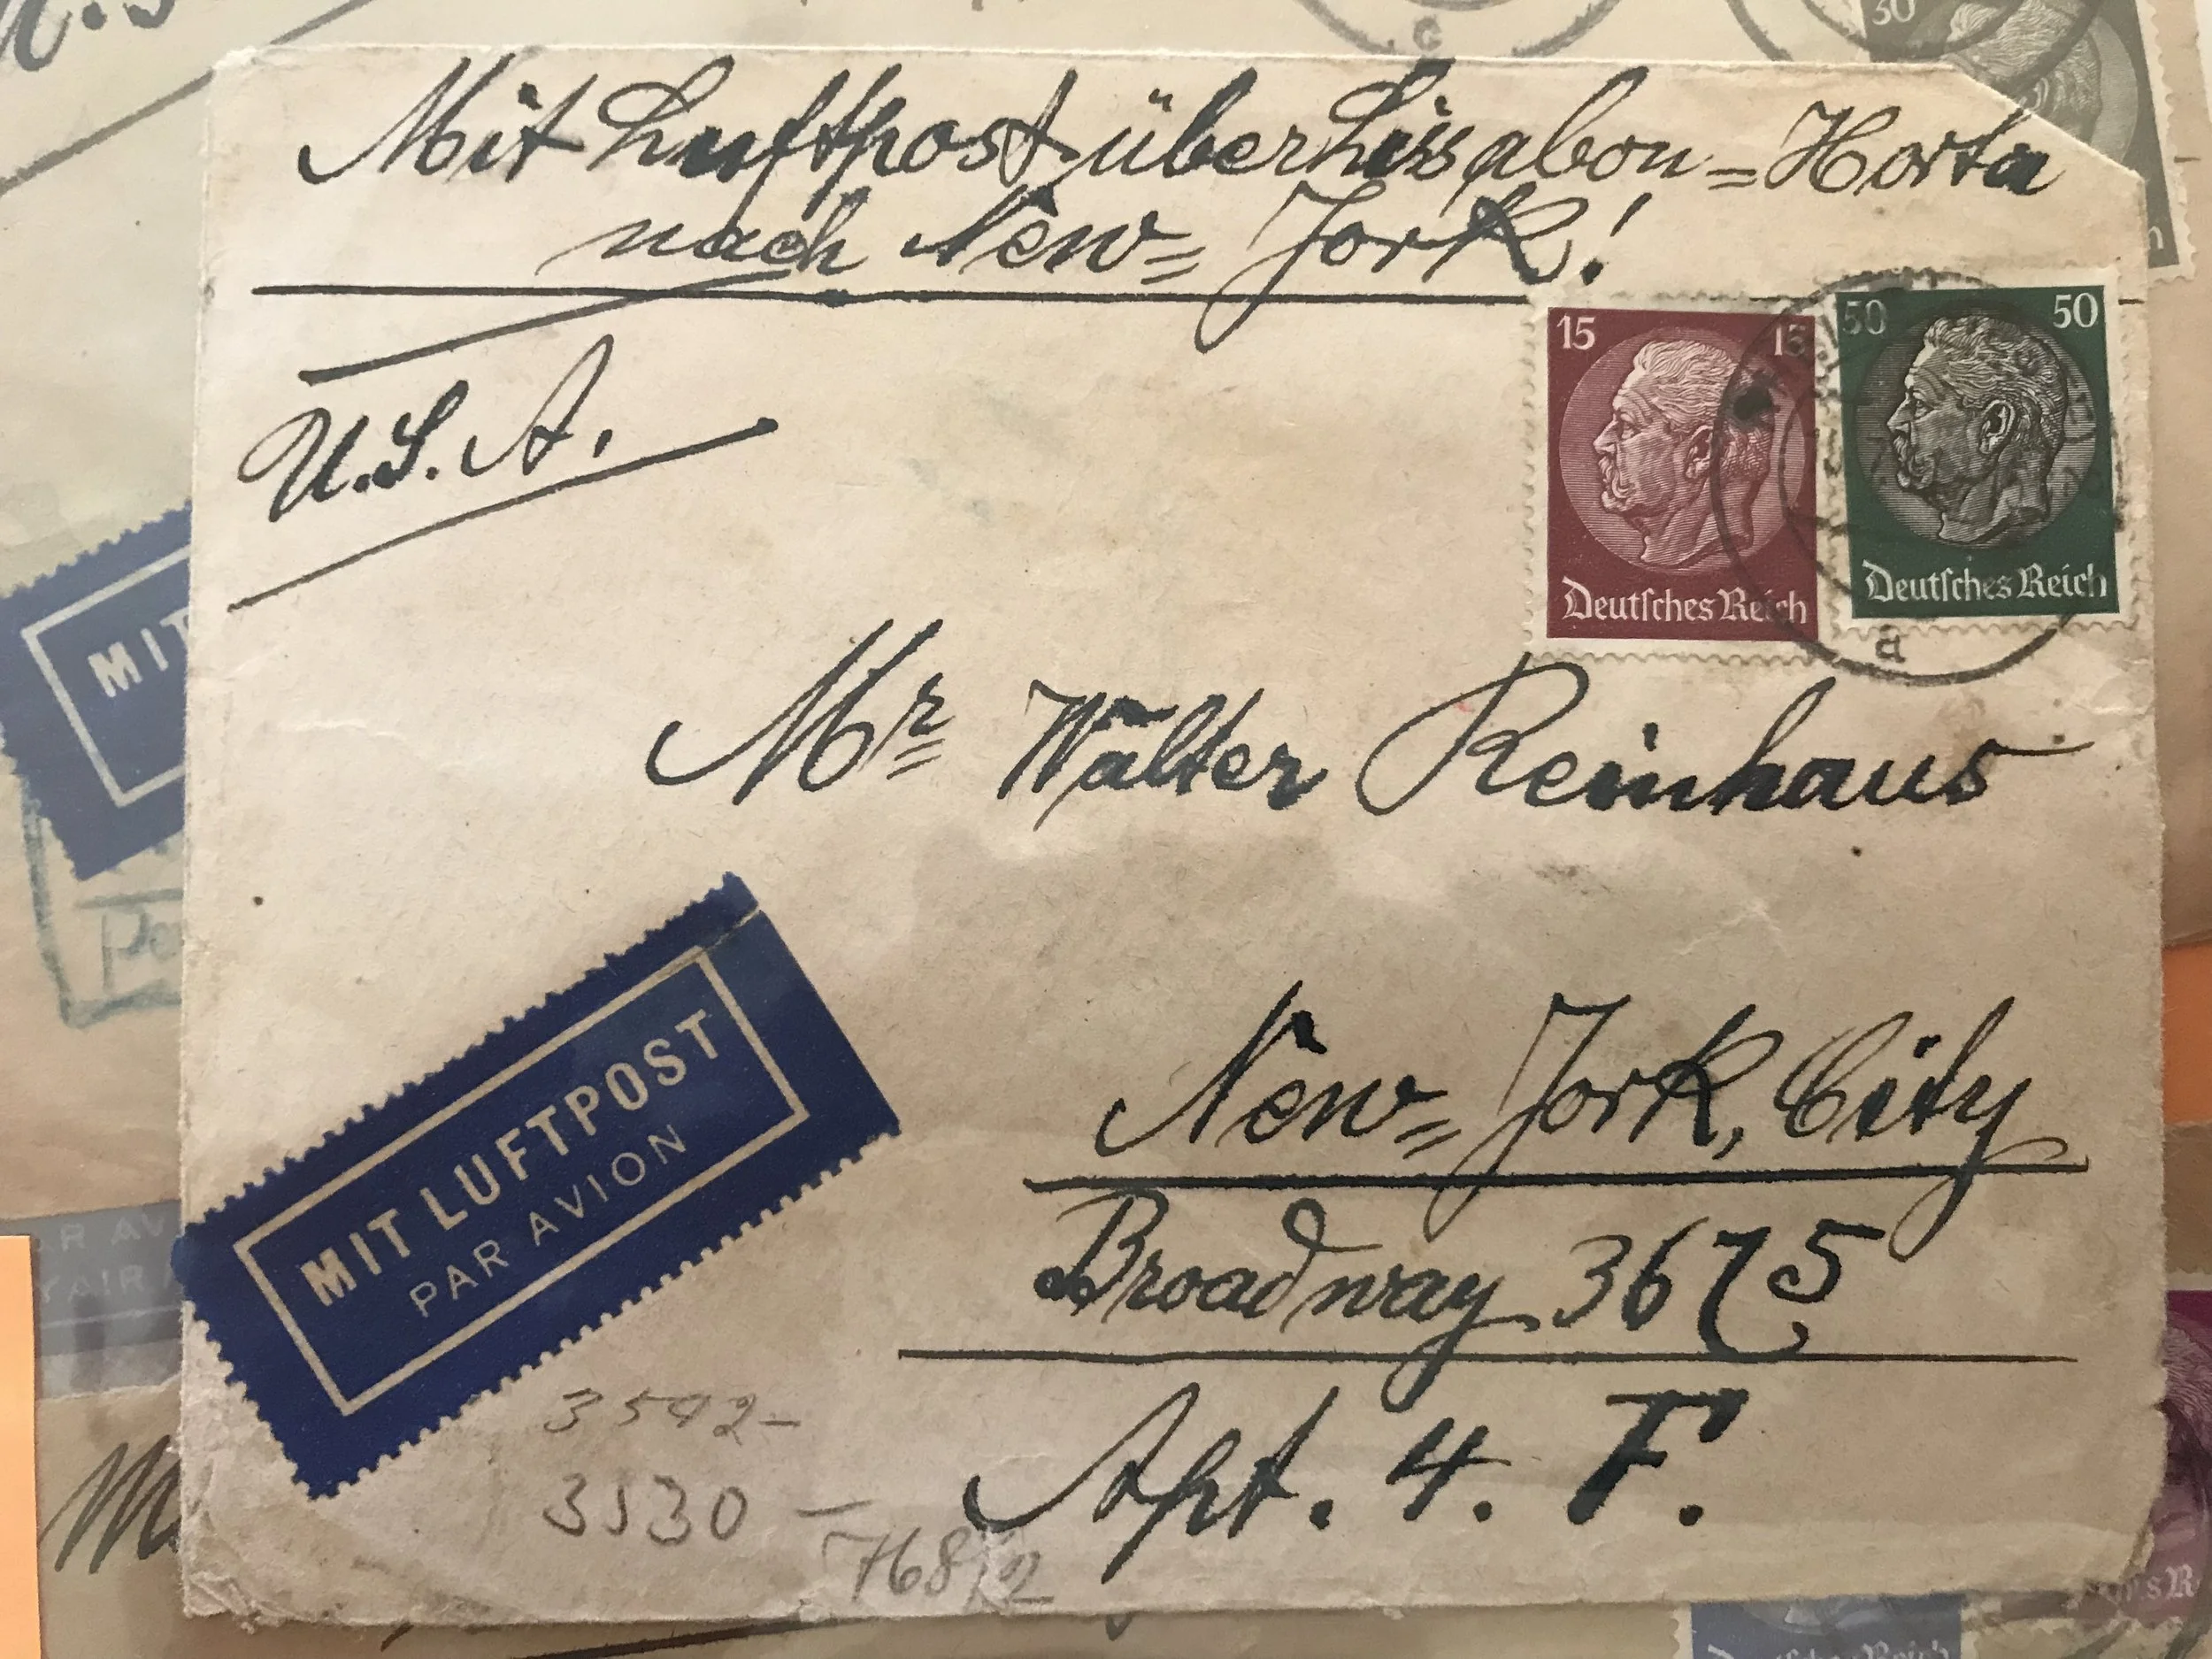 30
Mit Luftpost über Lissabon = Horta
nach New = Jork!
U.S.A.
15 15
Deutsches Reich
50 50
Deutsches Reich
a
Mr Walter Reinhaus
MIT
MIT LUFTPOST
PAR AVION
New = Jork, City
Broadway 3675
Apt. 4. F.
3542-
3530 -
768/2